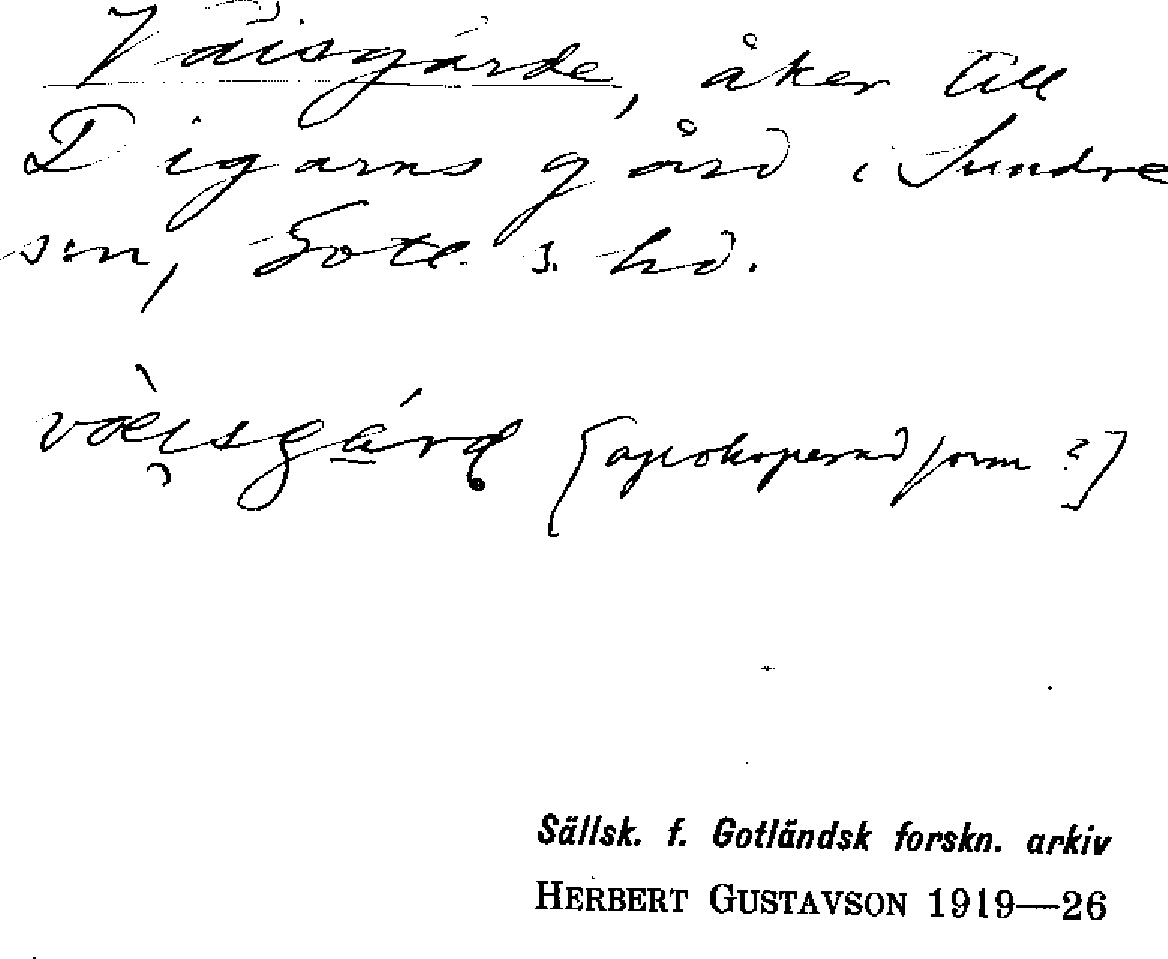 Väisgárde, åker till
Digarns gård i Sundre
sn, Gotl. s. hd.
væ̀i̯sgárd [apokoperad form?]
Sällsk. f. Gotländsk forskn. arkiv
HERBERT GUSTAVSON 1919—26